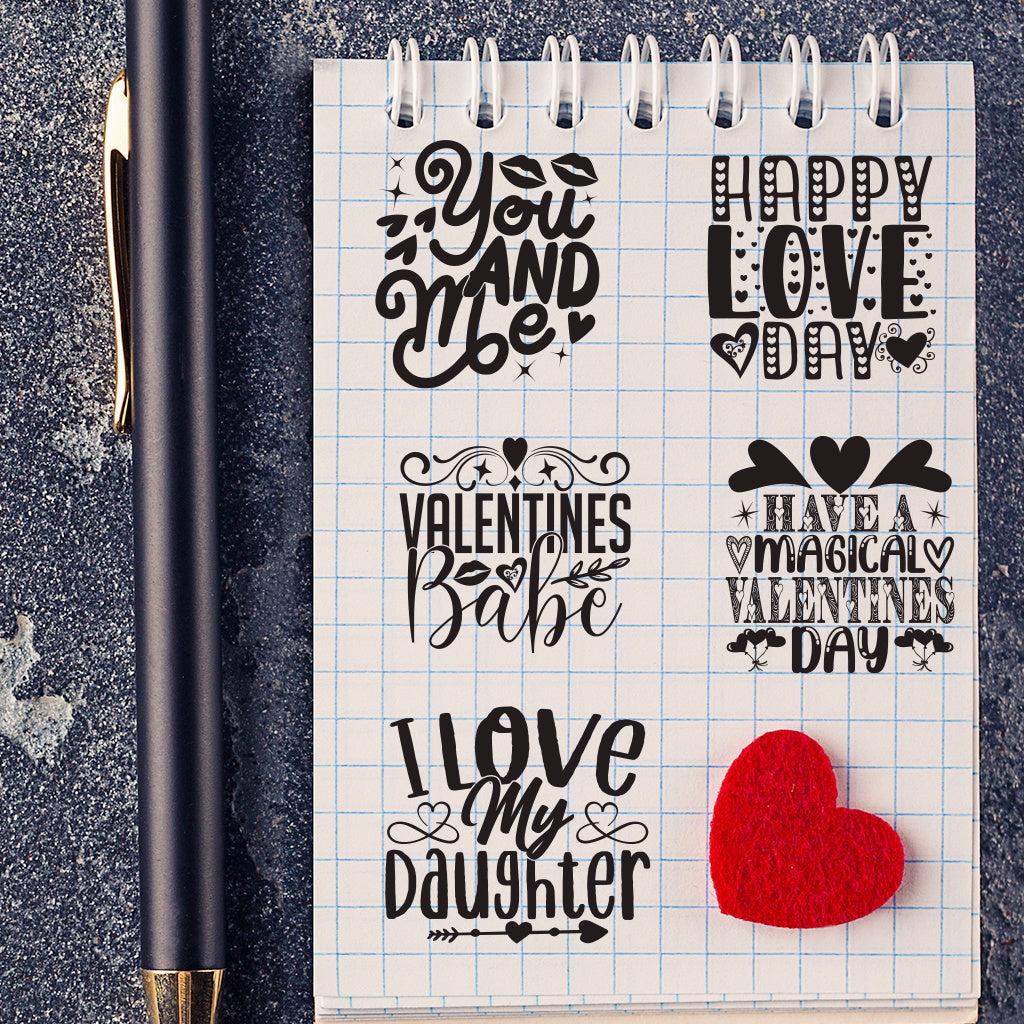 You
AND
Me
HAPPY
LOVE
DAY
VALENTINES
Babe
HAVE A
MAGICAL
VALENTINES
DAY
I LOVE
My
Daughter